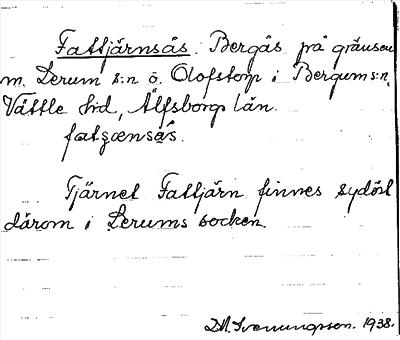 Fattjärnsås. Bergås på gränsen
m. Lerum s:n ö. Olofstorp i Bergum s:n,
Vättle hd, Älfsborgs län.
fatʂœnsås.
Tjärnet Fattjärn finnes sydöst
därom i Lerums socken.
D.A. Svenungsson. 1938.